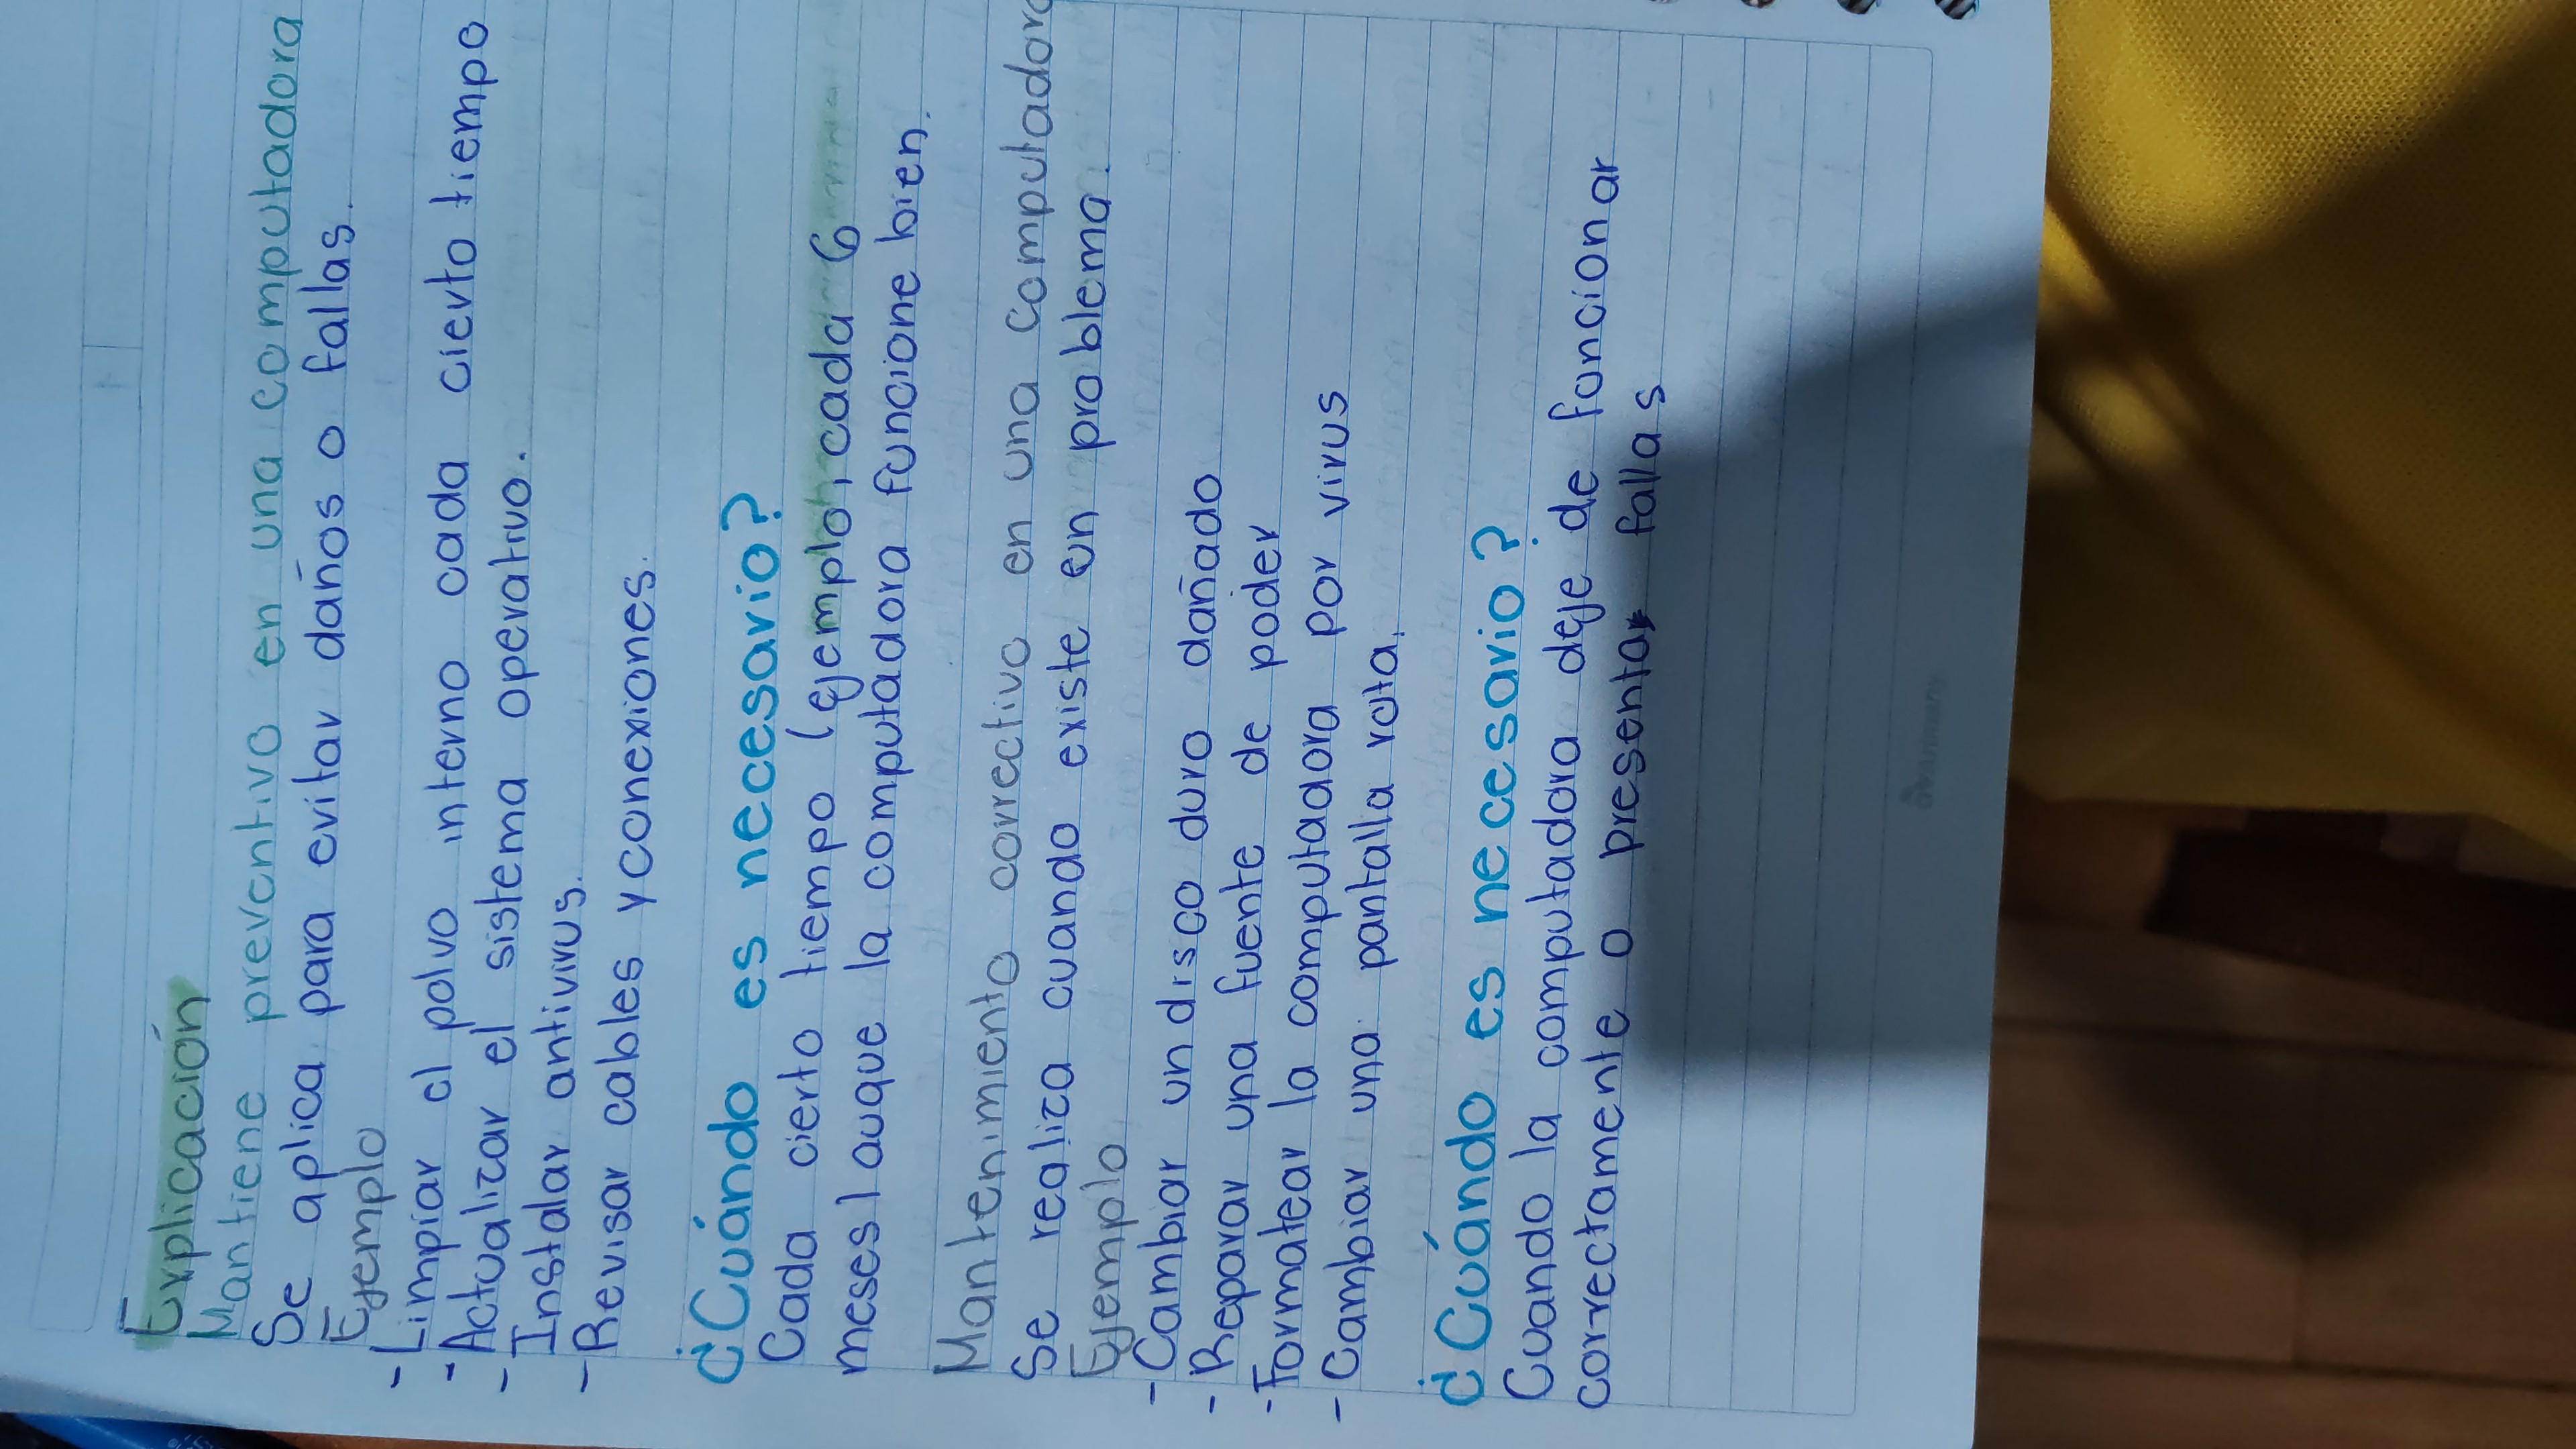 Explicación
Mantiene preventivo en una computadora
Se aplica para evitar daños o fallas.
Ejemplo
- Limpiar el polvo interno cada cierto tiempo
- Actualizar el sistema operativo.
- Instalar antivirus.
- Revisar cables y conexiones.
¿Cuándo es necesario?
Cada cierto tiempo (ejemplo, cada 6
meses) auque la computadora funcione bien.
Mantenimiento correctivo en una computadora
Se realiza cuando existe un problema.
Ejemplo
- Cambiar un disco duro dañado
- Reparar una fuente de poder
- Formatear la computadora por virus
- Cambiar una pantalla rota.
¿Cuándo es necesario?
Cuando la computadora deje de funcionar
correctamente o presentar fallas